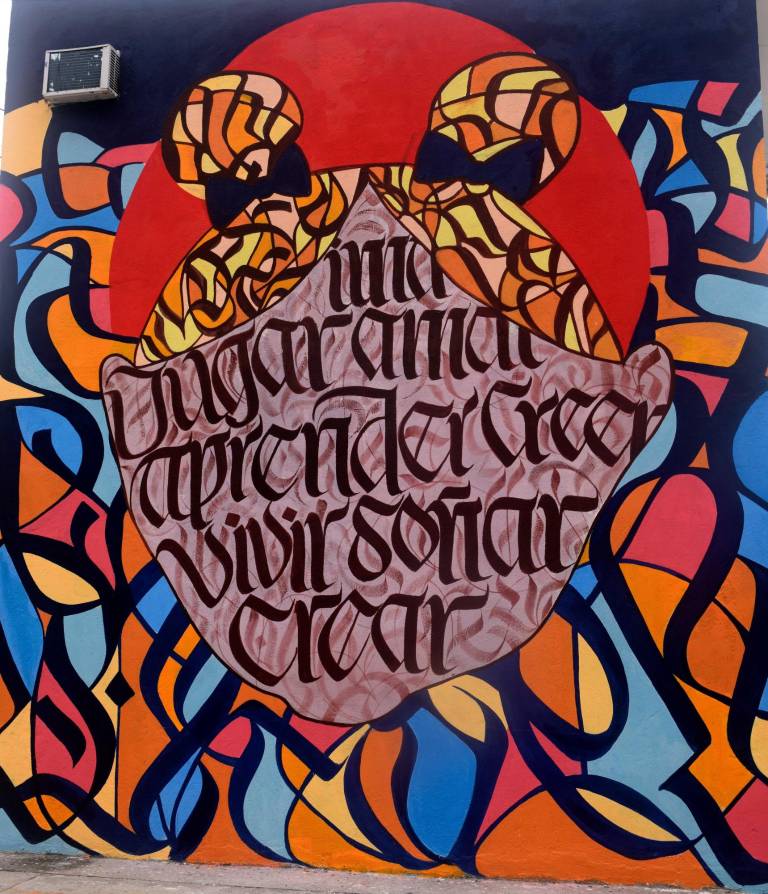 Jugar amar
aprender Creer
vivir soñar
crear